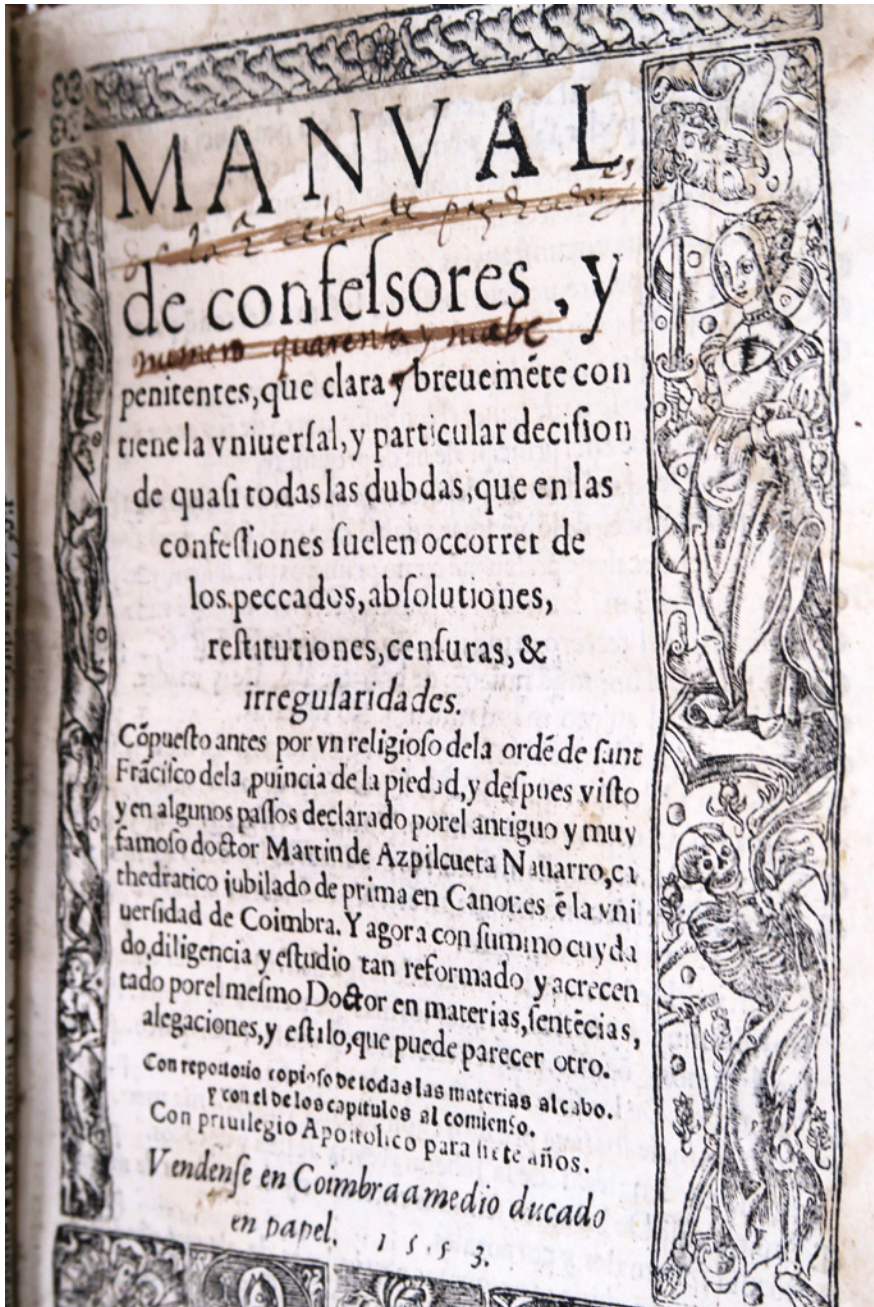 MANVAL
de confeſsores, y
numero quarenta y nuebe
penitentes, que clara y breuemẽte con
tiene la vniuerſal, y particular deciſion
de quaſi todas las dubdas, que en las
confeſſiones ſuelen occorrer de
los peccados, abſolutiones,
reſtitutiones, cenſuras, &
irregularidades.
Cõpueſto antes por vn religioſo dela ordẽ de ſant
Frãciſco dela puincia de la piedad, y deſpues viſto
y en algunos paſſos declarado porel antiguo y muy
famoſo doctor Martin de Azpilcueta Nauarro, ca
thedratico jubilado de prima en Canones ẽ la vni
uerſidad de Coimbra. Y agora con ſummo cuyda
do, diligencia y eſtudio tan reformado y acrecen
tado porel meſmo Doctor en materias, ſentẽcias,
alegaciones, y eſtilo, que puede parecer otro.
Con repottorio copioſo de todas las materias alcabo.
y con el de los capitulos al comienço.
Con priuilegio Apoſtolico para ſiete años.
Vendenſe en Coimbra a medio ducado
en papel. 1553.